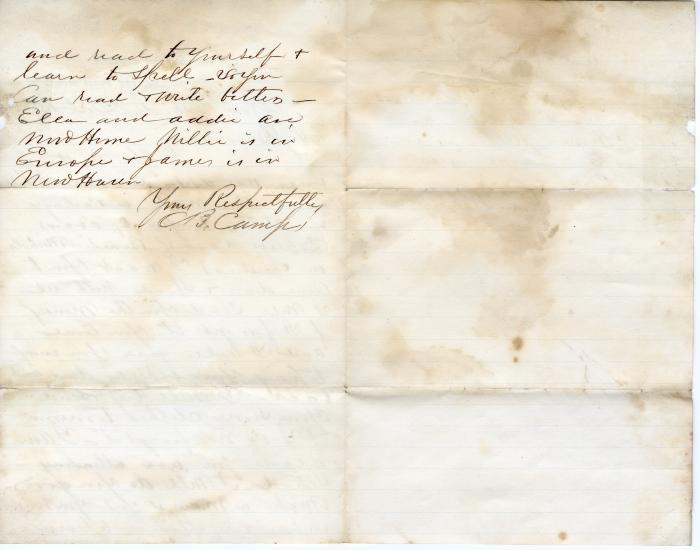 and read to yourself +
learn to Spell - So you
Can read + write better -
Ella and addie are
now Home Willie is in
Europe + James is in
New Haven
Yours Respectfully
C B. Camp